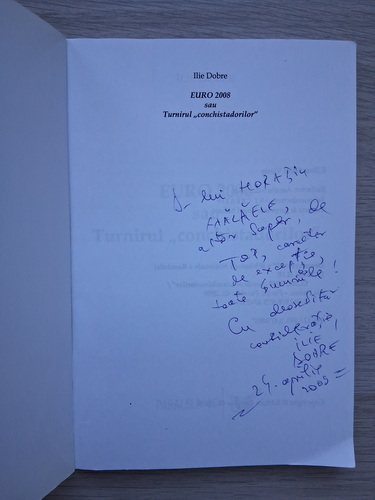 Ilie Dobre
EURO 2008
sau
Turnirul „conchistadorilor”
D-lui HORAȚIU
MĂLĂELE,
actor super, de
TOP, caracter
de excepție,
toate bunurile!
Cu deosebită
considerație,
ILIE
DOBRE
24. aprilie
2009